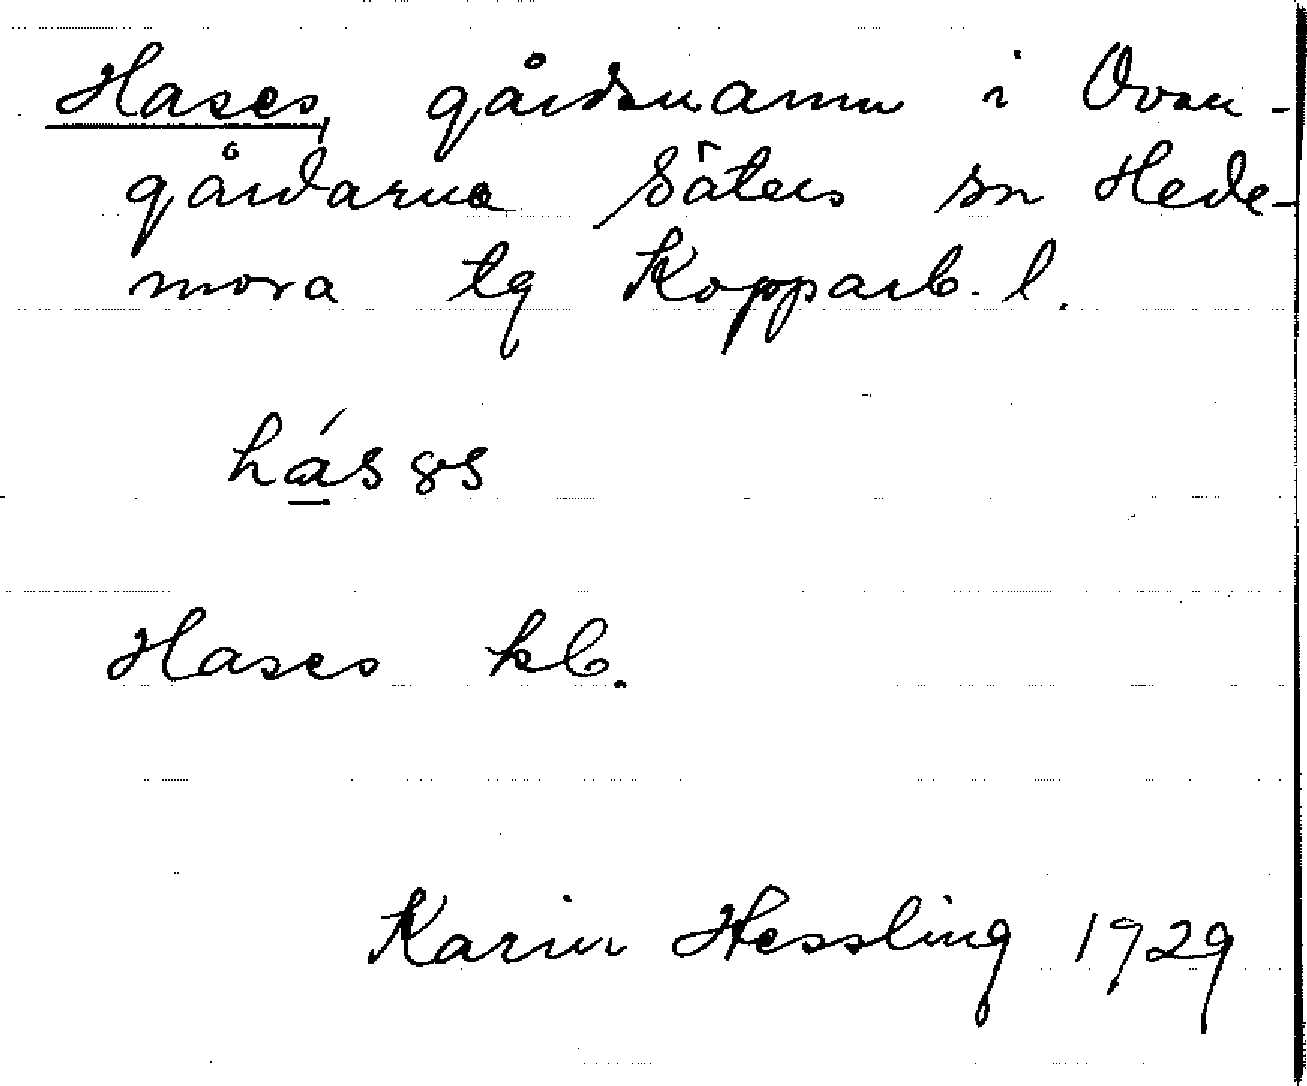 Hases, gårdsnamn i Ovan-
gårdarna Säters sn Hede-
mora tg Kopparb. l.
Hases kb.
Karin Hessling 1929